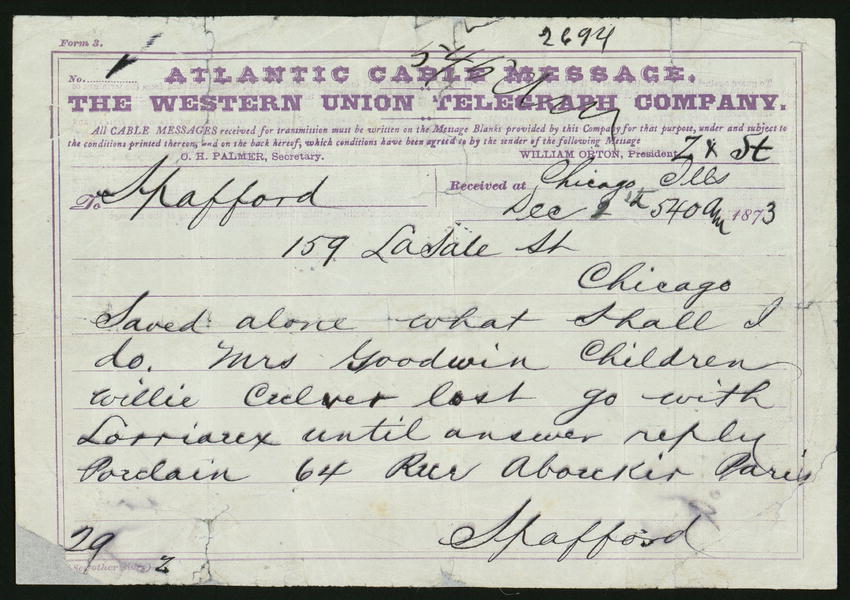 2694
Form 3.
No.
ATLANTIC CABLE MESSAGE.
THE WESTERN UNION TELEGRAPH COMPANY.
All CABLE MESSAGES received for transmission must be written on the Message Blanks provided by this Company for that purpose, under and subject to
the conditions printed thereon, and on the back hereof, which conditions have been agreed to by the sender of the following Message
O. H. PALMER, Secretary. WILLIAM ORTON, President
Z x St
To Spafford
Received at Chicago Ills
Dec 540 am 1873
159 LaSale St
Chicago
Saved alone what shall I
do. Mrs Goodwin Children
Willie Culver lost go with
Lorriaux until answer reply
Porclain 64 Rue Aboukir Paris
Spafford
29
z